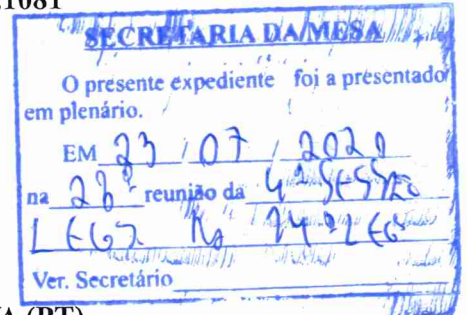 1081
SECRETARIA DA MESA
O presente expediente foi a presentado
em plenário.
EM 23 / 07 / 2020
na 28ª reunião da 4ª SESSÃO
LEGI
Ver. Secretário
(PT)